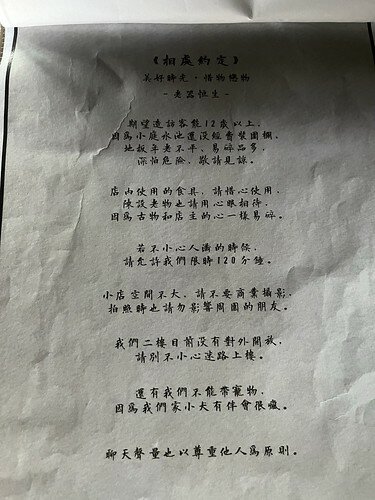 《相處約定》
美好時光‧惜物戀物
-老器恆生-
期望造訪客能12歲以上,
因為小庭水池還沒經費裝圍欄,
地板年老不平、易碎品多,
深怕危險,敬請見諒。
店內使用的食具,請惜心使用,
陳設老物也請用心眼相待,
因為古物和店主的心一樣易碎。
若不小心人滿的時候,
請允許我們限時120分鐘。
小店空間不大,請不要商業攝影,
拍照時也請勿影響周圍的朋友。
我們二樓目前沒有對外開放,
請別不小心迷路上樓。
還有我們不能帶寵物,
因為我們家小犬有伴會很瘋。
聊天聲量也以尊重他人為原則。